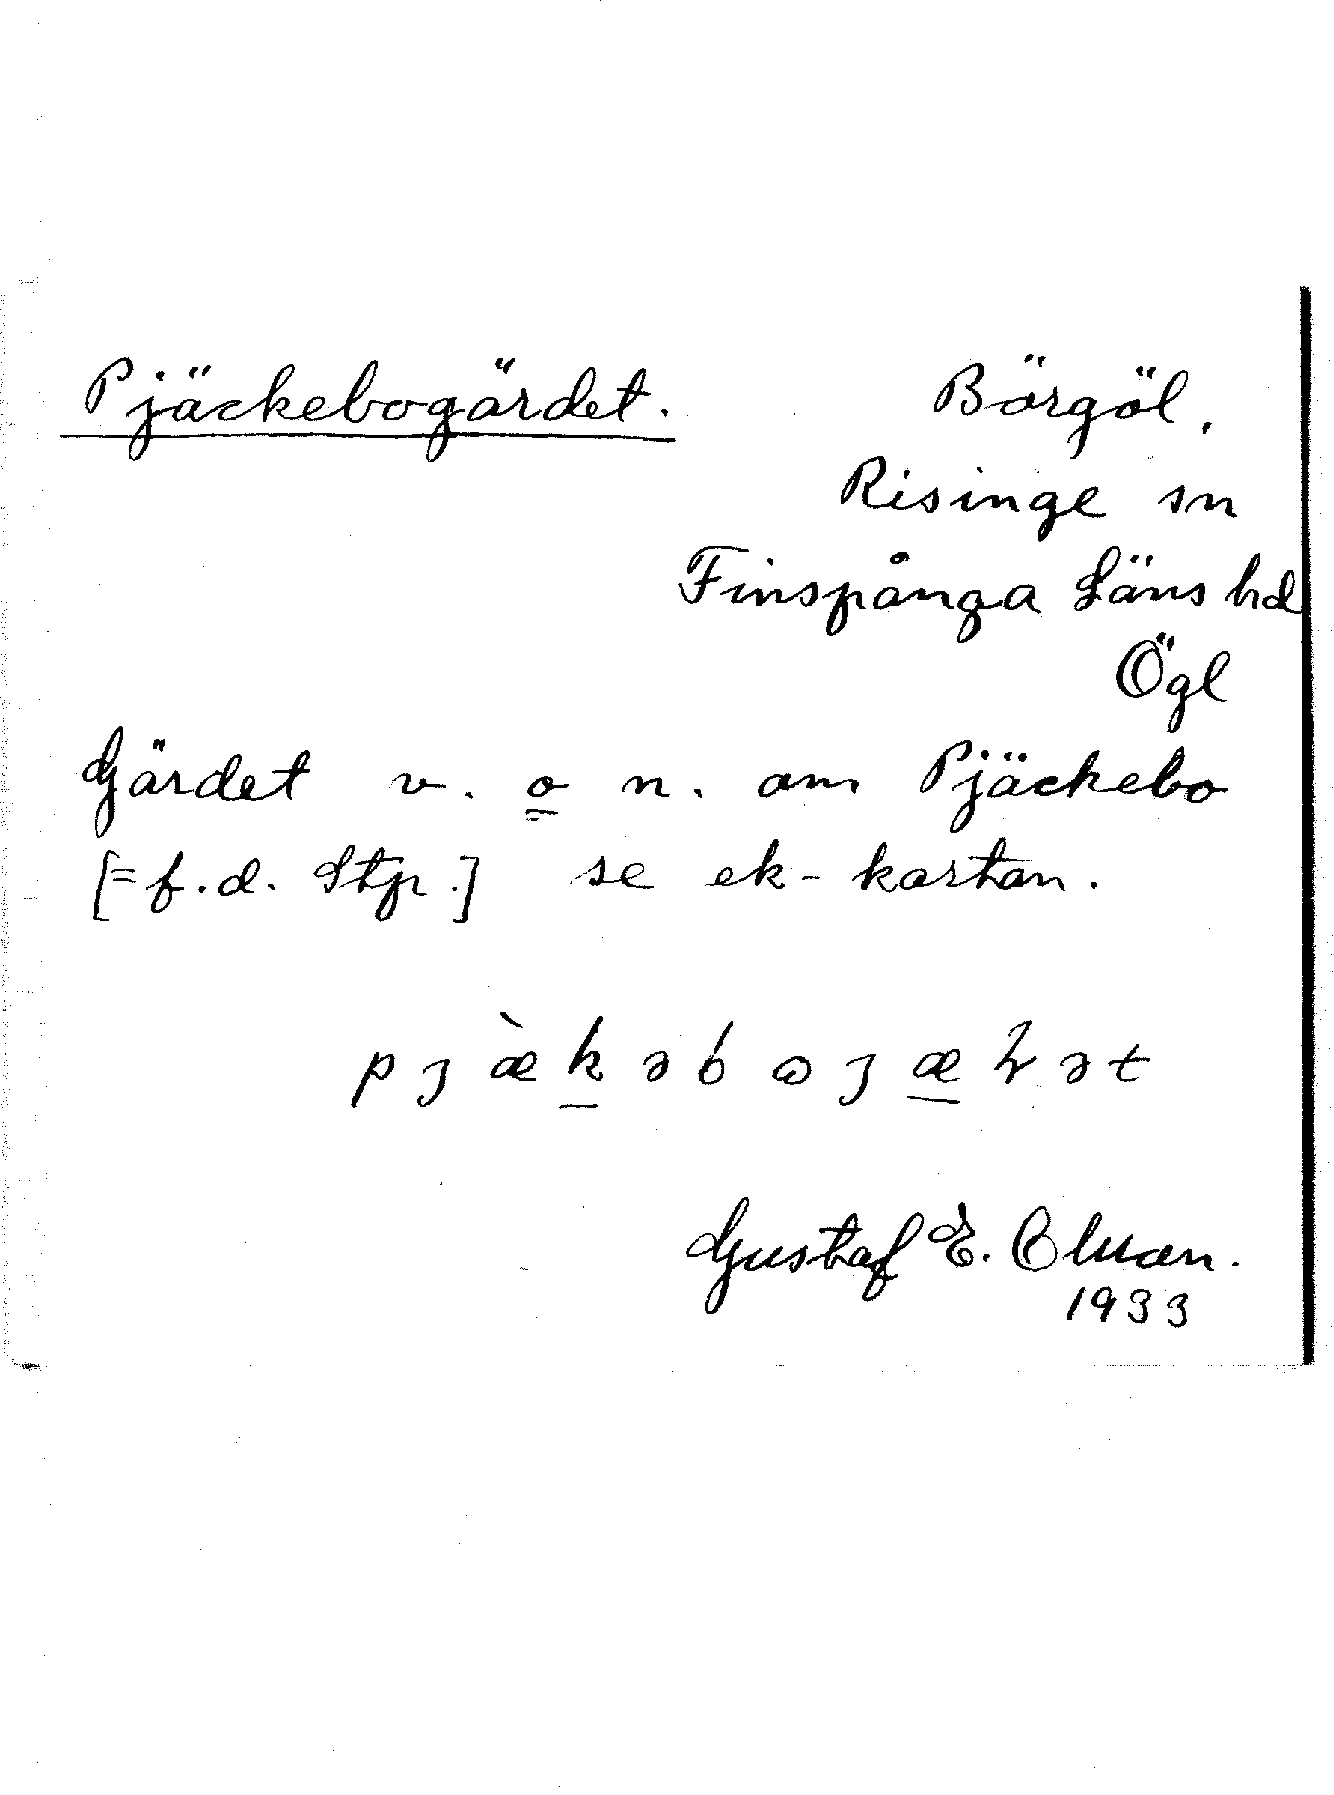 Pjäckebogärdet. Börgöl,
Risinge sn
Finspånga Läns hd
Ögl
Gärdet v. o n. om Pjäckebo
[= f.d. Stp.] se ek-kartan.
Gustaf E.
1933